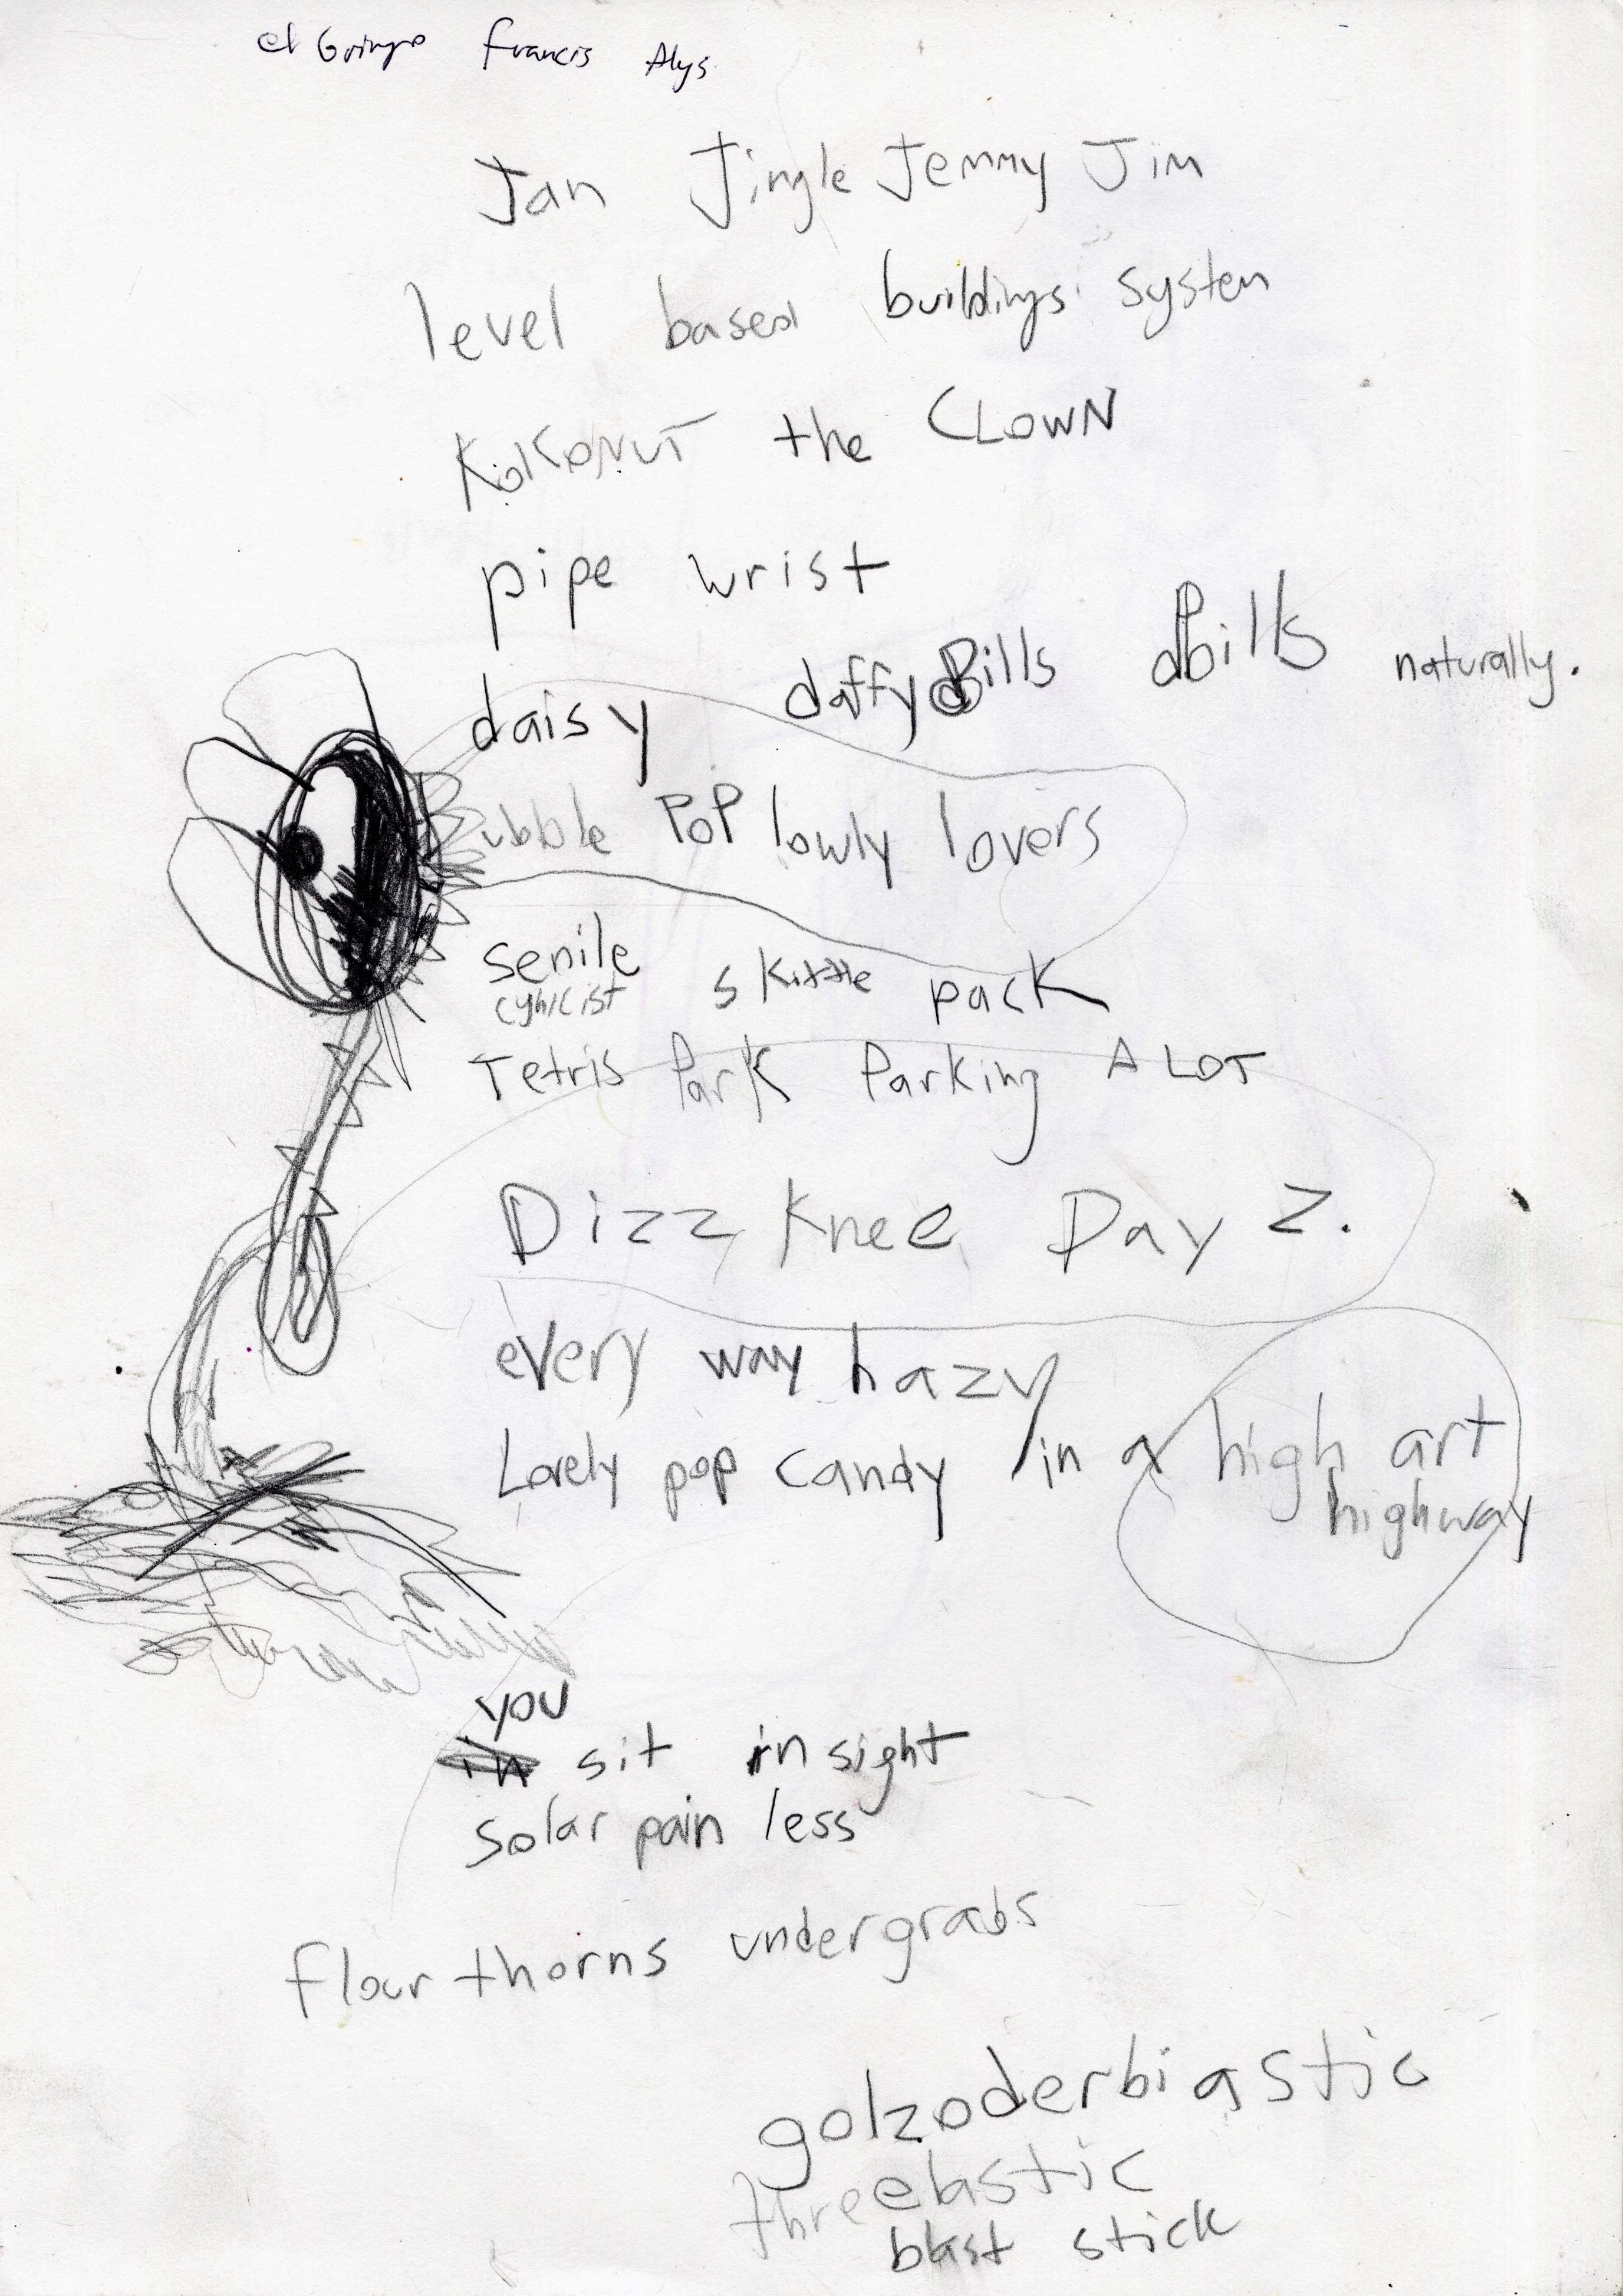 el Gringo Francis Alys
Jan Jingle Jemmy Jim
level based buildings system
KOKONUT the CLOWN
pipe wrist
daisy daffy Bills naturally.
Bubble POP lowly lovers
senile skittle pack
cynicist
Tetris Park Parking A LOT
Dizz Knee Day Z.
every way hazy
Lovely pop candy in a high art
highway
you
in sit in sight
solar pain less
flour thorns undergrabs
golzoderbiastic
threelastic
blast stick